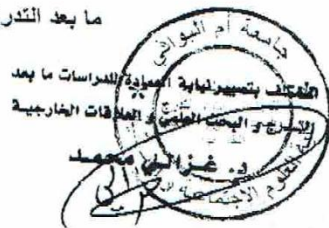 ما بعد التدر
جامعة أم البواقي
المكلف بتسيير نيابة العمادة للدراسات ما بعد
التدرج و البحث العلمي و العلاقات الخارجية
د. غزالي محمد
العلوم الاجتماعية